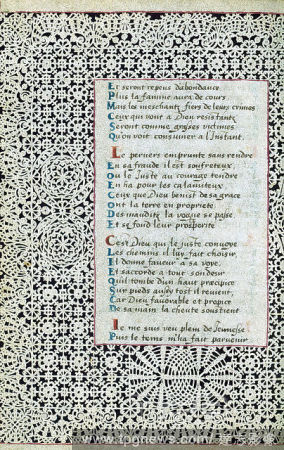 Et seront repeus dabondance
Plus la famine aura de cours
Mais les meschantz fiers de leurs crimes
Ceux qui vont a Dieu resistantz
Seront comme grasses victimes
Qu'on voit consumer a l'instant.
Le pervers emprunte sans rendre
En sa fraude il est souffreteux
Ou le Juste au courage tendre
En ha pour les calamiteux
Ceux que Dieu benist de sa grace
Ont la terre en proprieté
Des mauditz la vogue se passe
Et se fond leur prosperité
C'est Dieu qui le juste convoye
Les chemins il luy fait choisir
Il donne faveur a sa voye
Et saccorde a tout son
Quil tombe d'un haut præcipice
Sur pieds aussy tost il revient,
Car Dieu favorable et propice
De sa main la cheute soustient
Je me suis veu plein de Jeunesse
Puis le tems m'ha fait parvenir
www.tpgnews.com